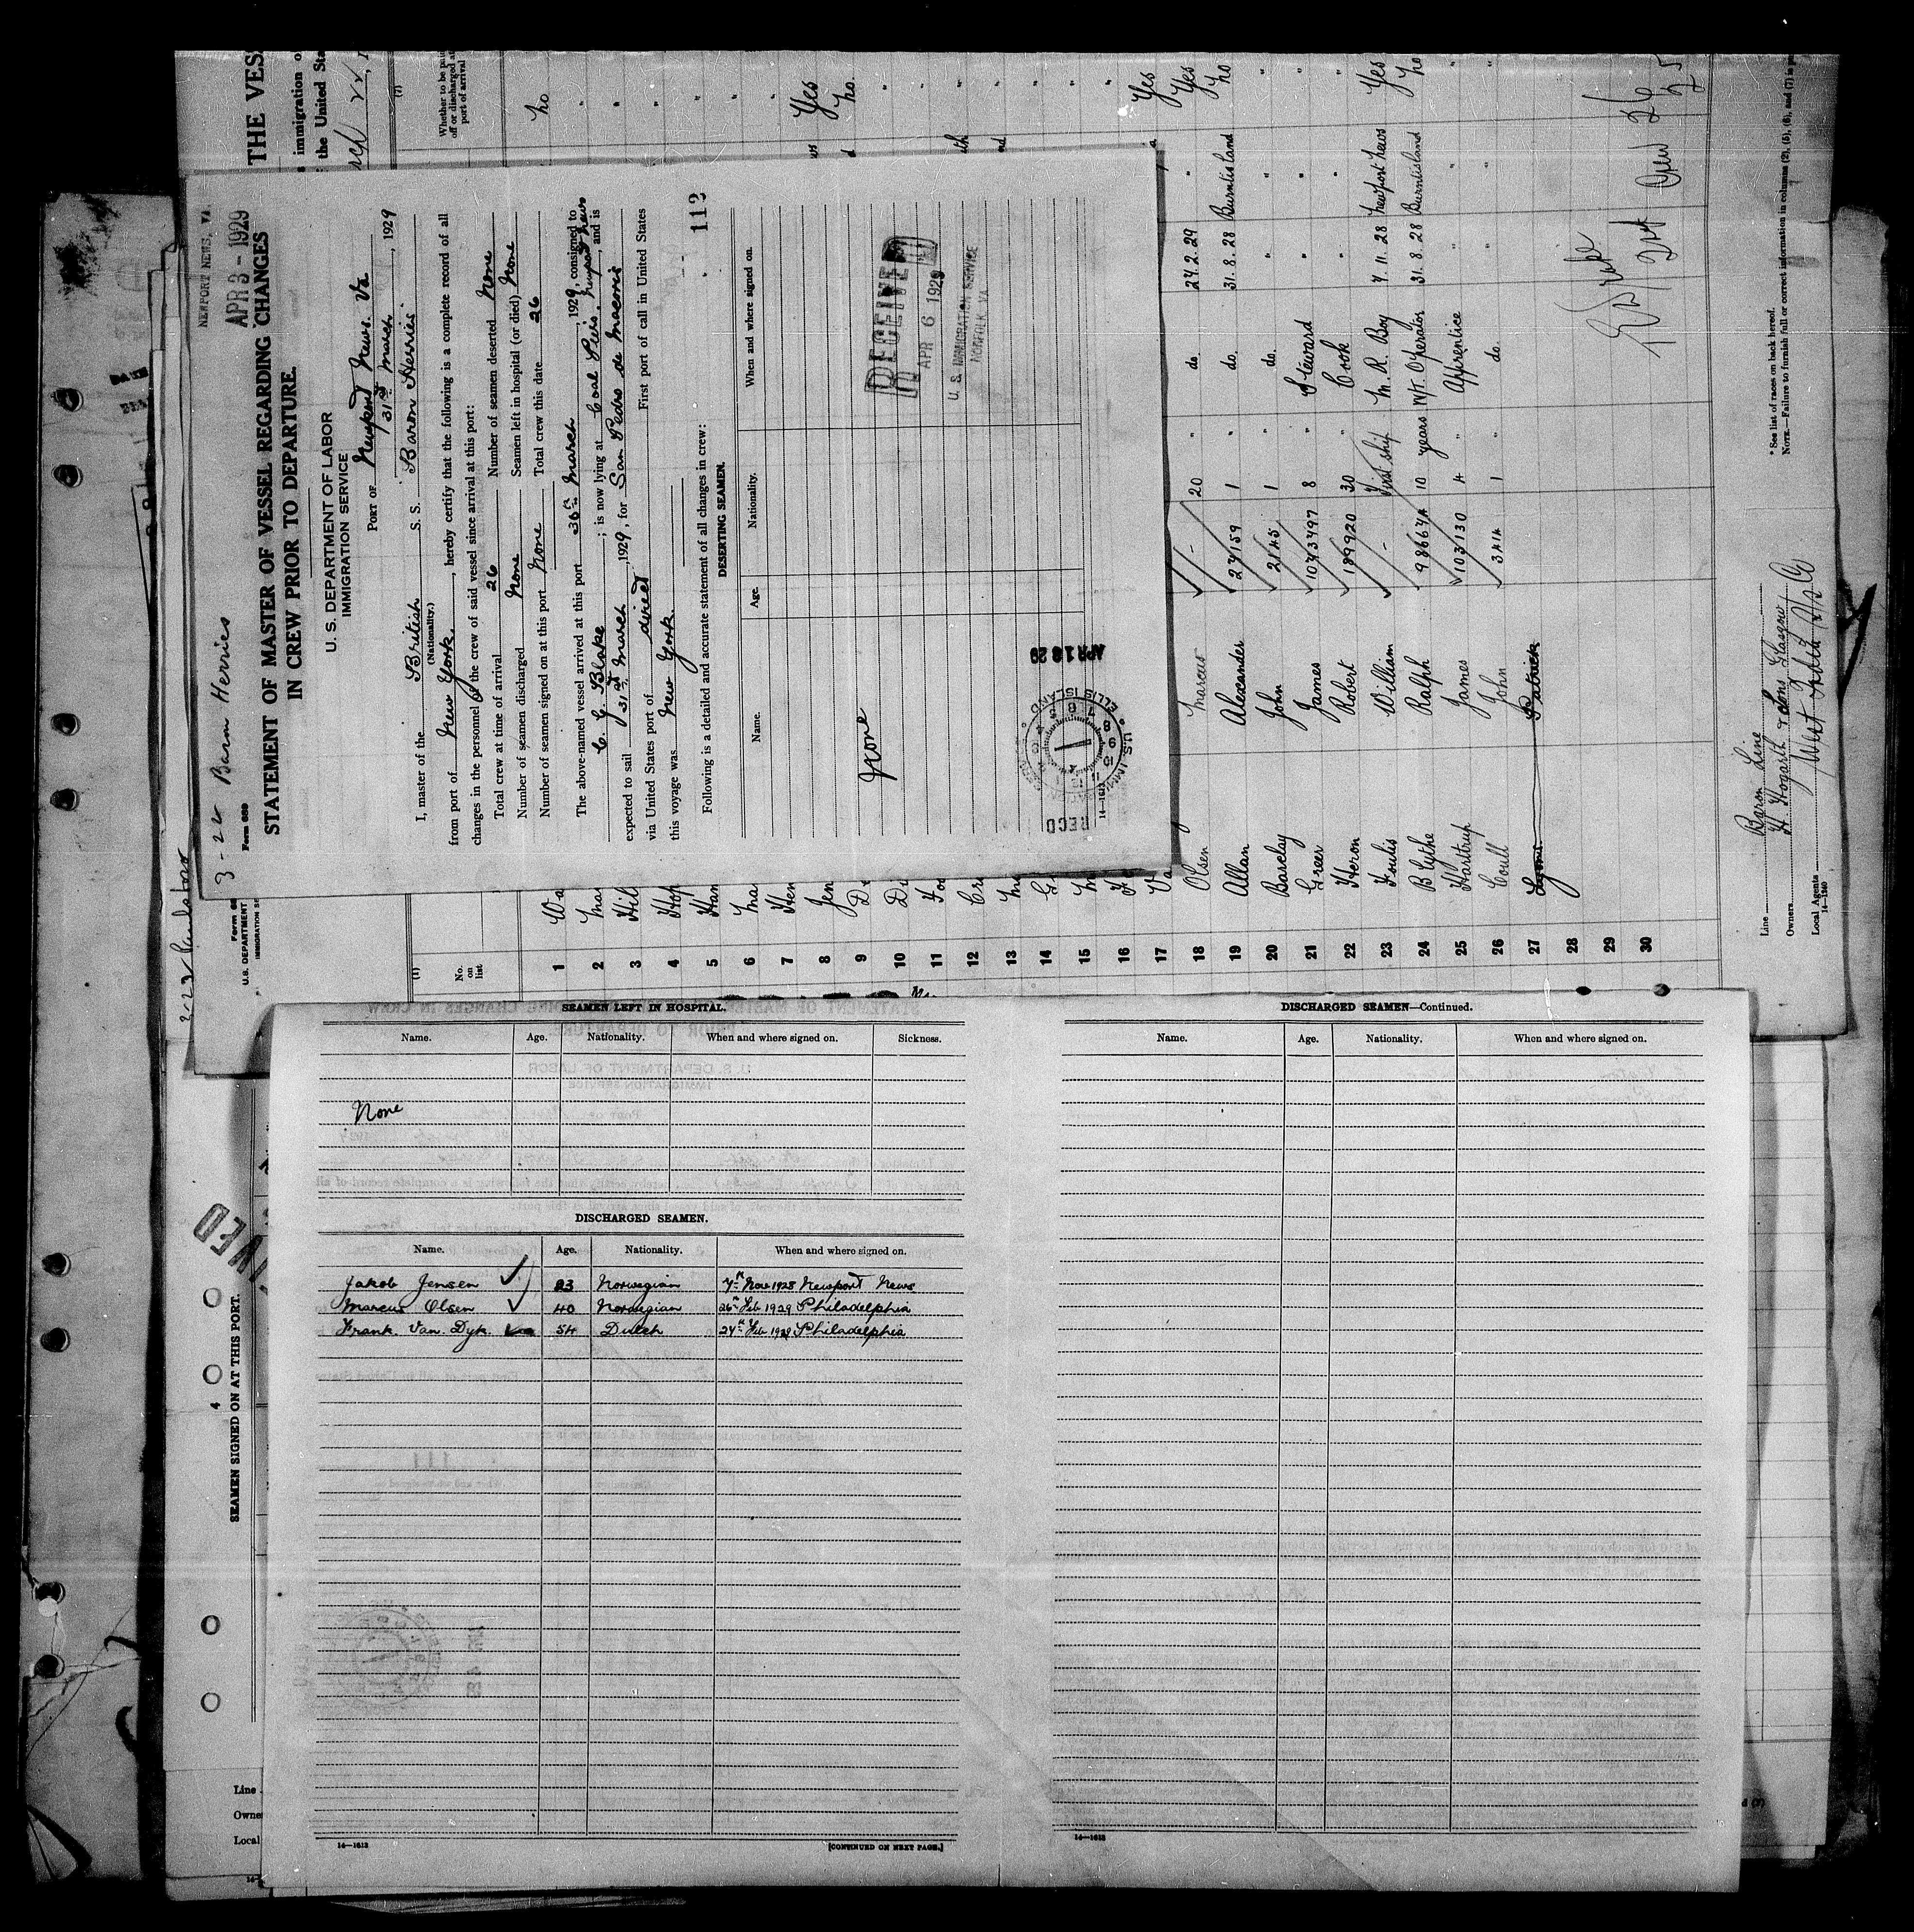 NEWPORT NEWS, VA.
APR 3 - 1929
3-24 Baron Herries
Form 689
STATEMENT OF MASTER OF VESSEL REGARDING CHANGES
IN CREW PRIOR TO DEPARTURE.
U. S. DEPARTMENT OF LABOR
IMMIGRATION SERVICE
PORT OF Newport News. Va
31st March, 1929
I, master of the British S. S. Baron Herries
(Nationality.)
from port of New York, hereby certify that the following is a complete record of all
changes in the personnel of the crew of said vessel since arrival at this port:
Total crew at time of arrival 26 Number of seamen deserted None
Number of seamen discharged None Seamen left in hospital (or died) None
Number of seamen signed on at this port None Total crew this date 26
The above-named vessel arrived at this port 30th March, 1929, consigned to
C. G. Blake; is now lying at Coal Piers, Newport News, and is
expected to sail 31st March, 1929, for San Pedro de Macoris
via United States port of direct First port of call in United States
this voyage was New York.
113
Following is a detailed and accurate statement of all changes in crew:
DESERTING SEAMEN.
Name. Age. Nationality. When and where signed on.
None
RECEIVED
APR 6 1929
U. S. IMMIGRATION SERVICE
NORFOLK VA.
RECD
APR 18 29
U.S. IMMIGRATION
ELLIS ISLAND
14—1613
THE VES
immigration o
the United Sta
(7)
Whether to be paid
off or discharged at
port of arrival
U.S. DEPARTMENT
IMMIGRATION SE
(1)
No.
on
list
1
2
3
4
5
6
7
8
9
10
11
12
13
14
15
16
17
18 Olsen Marcus - 20 " do. 27.2.29 " Yes
19 Allan Alexander 27159 1 " do. 31.8.28 Burntisland no
20 Barclay John 2145 1 " do. " " "
21 Greer James 1043497 8 " Steward " " "
22 Heron Robert 189920 30 " Cook " " "
23 Foulis William - First ship M. R. Boy 7.11.28 Newport News Yes
24 Blythe Ralph 986674 10 years W/T. Operator 31.8.28 Burntisland no
25 Harttrup James 103130 4 " Apprentice " " "
26 Coull John 3414 1 " do. " " "
27 Lyons Patrick
28
29
30
* See list of races on back hereof.
NOTE.—Failure to furnish full or correct information in columns (2), (5), (6), and (7) is p
Line Baron Line
Owners H. Hogarth & Sons Glasgow
Local Agents
14—1240
SEAMEN LEFT IN HOSPITAL.
Name. Age. Nationality. When and where signed on. Sickness.
None
DISCHARGED SEAMEN.
Name. Age. Nationality. When and where signed on.
Jakob Jensen 23 Norwegian 7th Nov 1928 Newport News
Marcus Olsen 40 Norwegian 26th Feb 1929 Philadelphia
Frank Van Dyk 54 Dutch 27th Feb 1929 Philadelphia
14—1613 [CONTINUED ON NEXT PAGE.]
DISCHARGED SEAMEN—Continued.
Name. Age. Nationality. When and where signed on.
14—1613
4
SEAMEN SIGNED ON AT THIS PORT.
Line
Owne
Local